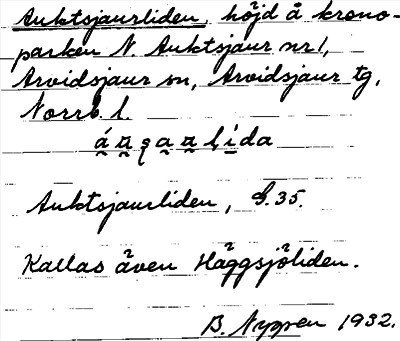 Auktsjaurliden, höjd å krono-
parken N. Auktsjaur nr 1,
Arvidsjaur sn, Arvidsjaur tg,
Norrb. l.
Auktsjaurliden, G. 35.
Kallas även Häggsjöliden.
B. Nyppen 1932.